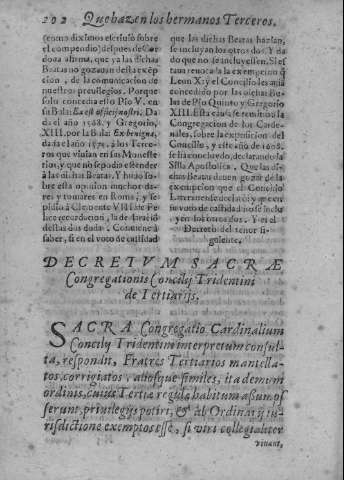 202 Que hazen los hermanos Terceros.
(como diximos el escusso sobre
el compendio) despues de Cor
doua afirma, que ya las dichas
Beatas no gozauan desta excep
cion, de la comunicacion de
nuestros preuilegios. Porque
solo concedia esto Pio V. en
su Bula: Ea est officij nostri, Da
da el año 1568. y Gregorio,
XIII. por la Bula: Ex benigna,
da da el año 1575. à los Terce-
ros que viuian en sus Monesterios,
y que no se podia estender
à las dichas Beatas. Y huuo so-
bre esta opinion muchos da-
res y tomares en Roma; y se
pidio à Clemente VIII. de Fe
lice recordacion, la declaració
destas dos dudas. Conuiene à
saber, si en el voto de castidad
que las dichas Beatas hazian,
se incluyan los otros dos. Y da
do que no se incluyessen. Si es
taua reuocada la exempcion q̃
Leon X. y el Concilio les auia
concedido por las dichas Bu-
las de Pio Quinto y Gregorio
XIII. Esta causa, se remitio à la
Congregacion de los Carde-
nales, sobre la exposicion del
Concilio, y este año de 1608.
se ha concluydo, declarando la
Silla Apostolica. Que las di-
chas Beatas deuen gozar de la
exempcion que el Concilio
Lateranense les dio: y que en
su voto de castidad no se inclu
yen los otros dos. Y es el
Decreto del tenor si-
guiente.
DECRETVM SACRÆ
Congregationis Concilij Tridentini
de Tertiarijs.
SACRA Congregatio Cardinalium
Concilij Tridentini interpretum consul-
ta, respondit, Fratres Tertiarios mantella-
tos, corrigiatos, aliosque similes, ita demum
ordinis, cuius Tertiæ regulæ habitum assump-
serunt, priuilegijs potiri, & ab Ordinarij iu-
risdictione exemptos esse, si viri collegialiter
viuant,